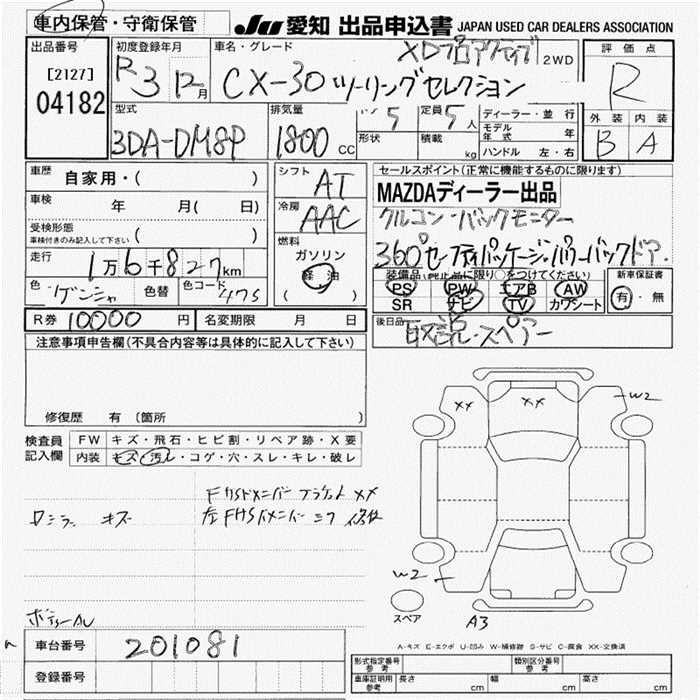 車内保管・守衛保管
JU 愛知 出品申込書 JAPAN USED CAR DEALERS ASSOCIATION
出品番号
[2127]
04182
初度登録年月
R3 12月
車名・グレード
XDプロアクティブ
2WD
CX-30 ツーリングセレクション
評価点
R
外装 内装
B A
型式
3DA-DM8P
排気量
1800 CC
ドア 5
形状
定員 5人
積載 kg
ディーラー・並行
モデル年式 年
ハンドル 左・右
車歴 自家用・( )
車検 年 月( 日)
受検形態
車検付きのみ記入して下さい ( )
走行 1万6千827km
色 ゲンニャ 色替 色コード 47S
シフト AT
冷房 AAC
燃料
ガソリン
軽油
( )
セールスポイント(正常に機能するものに限ります)
MAZDAディーラー出品
クルコン バックモニター
360°セーフティパッケージ・パワーバックドア
装備品(純正品に限り○をつけてください)
PS PW エアB AW
SR ナビ TV カワシート
新車保証書
有・無
後日品
取説・スペアー
R券 10000 円 名変期限 月 日
注意事項申告欄(不具合内容等は具体的に記入して下さい)
修復歴 有(箇所 )
検査員記入欄
FW キズ・飛石・ヒビ割・リペア跡・X要
内装 キズ・汚レ・コゲ・穴・スレ・キレ・破レ
FHSドメンバーブラケット XX
左FHSドメンバー
キズ
XX XX W2
W2
スペア A3
A-キズ E-エクボ U-凹み W-補修跡 S-サビ C-腐食 XX-交換済
車台番号 201081
登録番号
型式指定番号 参考
類別区分番号 参考
車庫証明用 参考 長さ cm 幅 cm 高さ cm